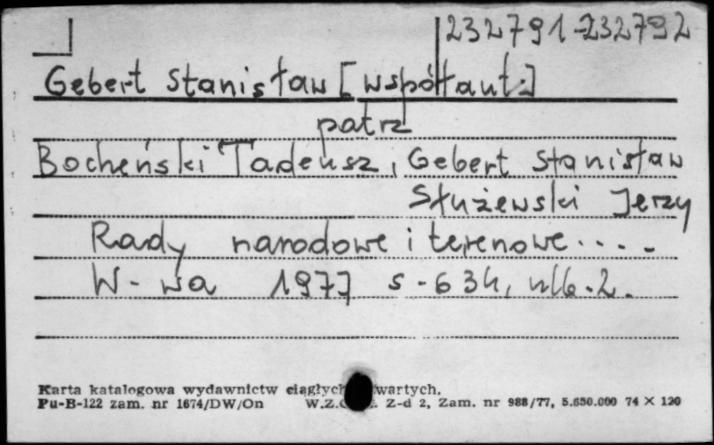 232791-232792
Gebert Stanisław [współaut.]
patrz
Bocheński Tadeusz, Gebert Stanisław
Służewski Jerzy
Rady narodowe i terenowe....
W-wa 1977 s-634, nlb.2.
Karta katalogowa wydawnictw ciągłych wartych.
Pu-B-122 zam. nr 1674/DW/On W.Z. Z-d 2, Zam. nr 988/77, 5.650.000 74 × 120